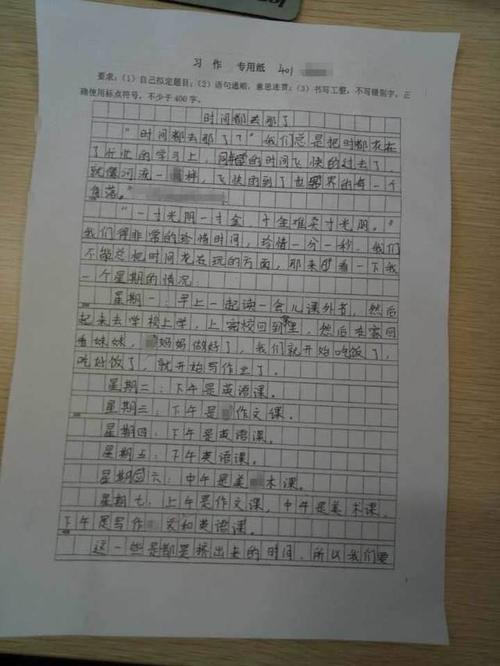 习 作 专用纸 401
要求：（1）自己拟定题目；（2）语句通顺，意思连贯；（3）书写工整，不写错别字，正
确使用标点符号，不少于400字。
时间都去那了
“时间都去那了？”我们总是把时都花在
了忙忙的学习上，的时间飞快的过去了，
就像河流一样，飞快的到了世界的每一个
角落。
“一寸光阴一寸金，寸光阴。”
我们得非常的珍惜时间，珍惜一分一秒，我们
不能总把时间花在玩的方面，那来看一下我
一个星期的情况：
星期一：早上一起读一会儿课外书，然后
起来去学校上学，上完校回到家里，然后在家回
看妹妹，妈妈做好了，我们就开始吃饭了，
吃好饭了，就开始写作业了。
星期二：下午是英语课。
星期三：下午是作文课。
星期四：下午是英语课。
星期五：下午英语课。
星期六：中午是美术课。
星期七：上午是作文课，中午是美术课，
下午是写作文和英语课。
这一些是都是挤出来的时间，所以我们要